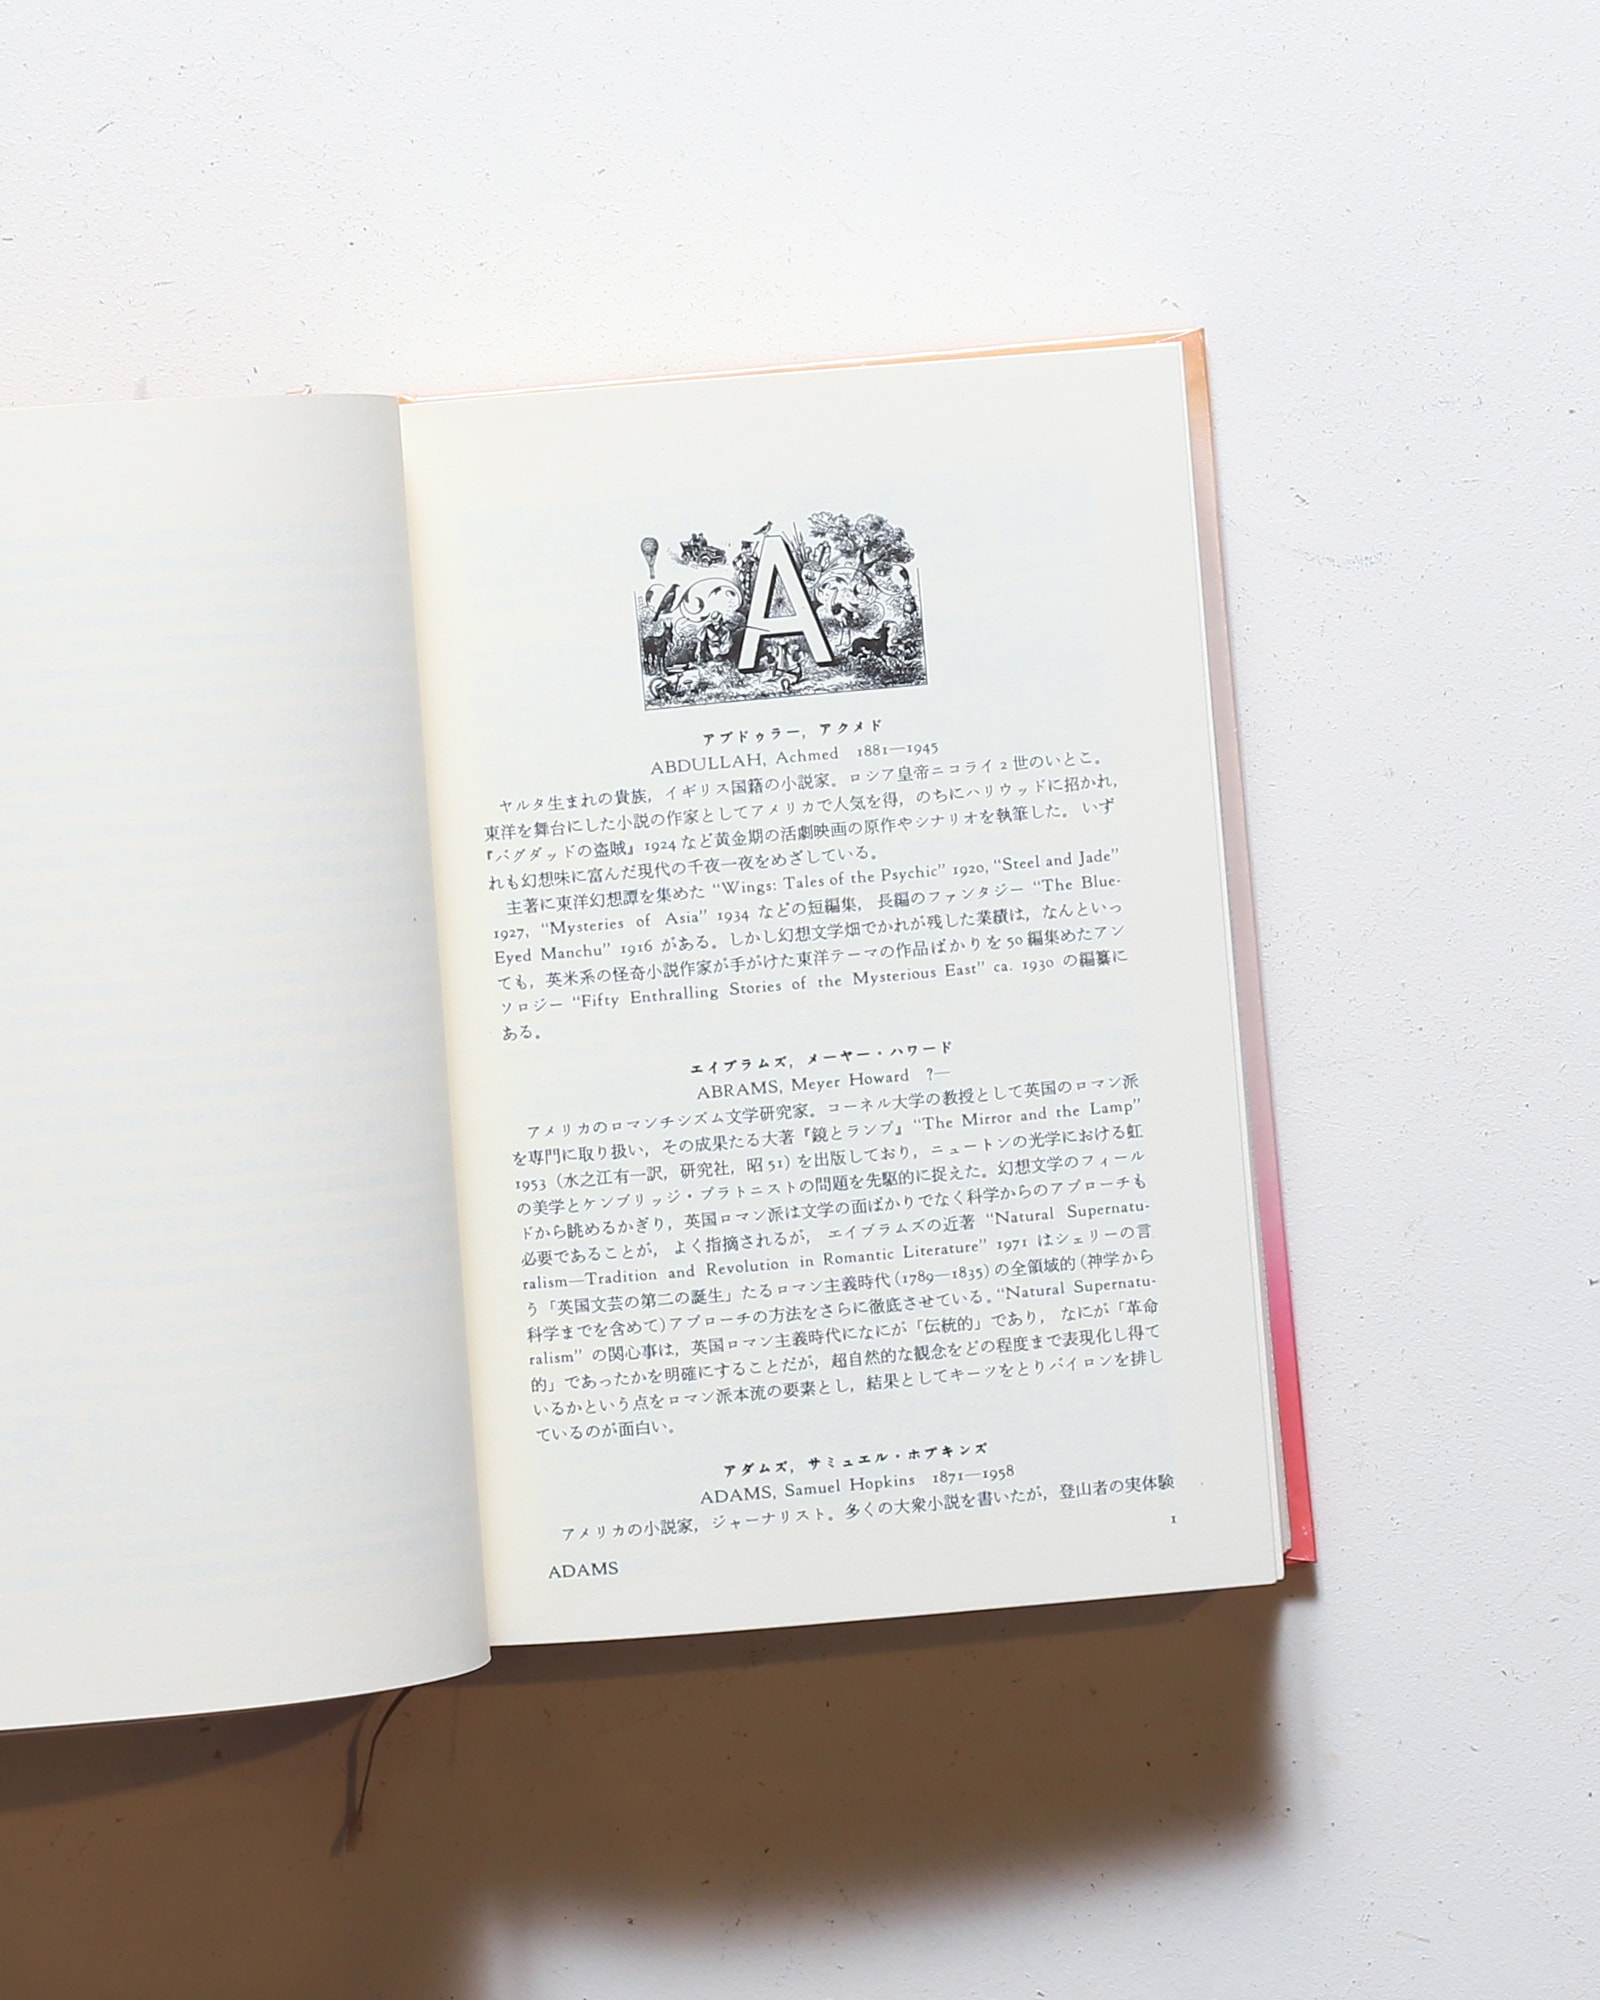 A
アブドゥラー, アクメド
ABDULLAH, Achmed 1881—1945
ヤルタ生まれの貴族, イギリス国籍の小説家。ロシア皇帝ニコライ2世のいとこ。
東洋を舞台にした小説の作家としてアメリカで人気を得, のちにハリウッドに招かれ,
『バグダッドの盗賊』1924など黄金期の活劇映画の原作やシナリオを執筆した。いず
れも幻想味に富んだ現代の千夜一夜をめざしている。
主著に東洋幻想譚を集めた “Wings: Tales of the Psychic” 1920, “Steel and Jade”
1927, “Mysteries of Asia” 1934 などの短編集, 長編のファンタジー “The Blue-
Eyed Manchu” 1916 がある。しかし幻想文学畑でかれが残した業績は, なんといっ
ても, 英米系の怪奇小説作家が手がけた東洋テーマの作品ばかりを50編集めたアン
ソロジー “Fifty Enthralling Stories of the Mysterious East” ca. 1930 の編纂に
ある。
エイブラムズ, メーヤー・ハワード
ABRAMS, Meyer Howard ?—
アメリカのロマンチシズム文学研究家。コーネル大学の教授として英国のロマン派
を専門に取り扱い, その成果たる大著『鏡とランプ』“The Mirror and the Lamp”
1953（水之江有一訳, 研究社, 昭51）を出版しており, ニュートンの光学における虹
の美学とケンブリッジ・プラトニストの問題を先駆的に捉えた。幻想文学のフィール
ドから眺めるかぎり, 英国ロマン派は文学の面ばかりでなく科学からのアプローチも
必要であることが, よく指摘されるが, エイブラムズの近著 “Natural Supernatu-
ralism—Tradition and Revolution in Romantic Literature” 1971 はシェリーの言
う「英国文芸の第二の誕生」たるロマン主義時代（1789—1835）の全領域的（神学から
科学までを含めて）アプローチの方法をさらに徹底させている。“Natural Supernatu-
ralism” の関心事は, 英国ロマン主義時代になにが「伝統的」であり, なにが「革命
的」であったかを明確にすることだが, 超自然的な観念をどの程度まで表現化し得て
いるかという点をロマン派本流の要素とし, 結果としてキーツをとりバイロンを排し
ているのが面白い。
アダムズ, サミュエル・ホプキンズ
ADAMS, Samuel Hopkins 1871—1958
アメリカの小説家, ジャーナリスト。多くの大衆小説を書いたが, 登山者の実体験
1
ADAMS